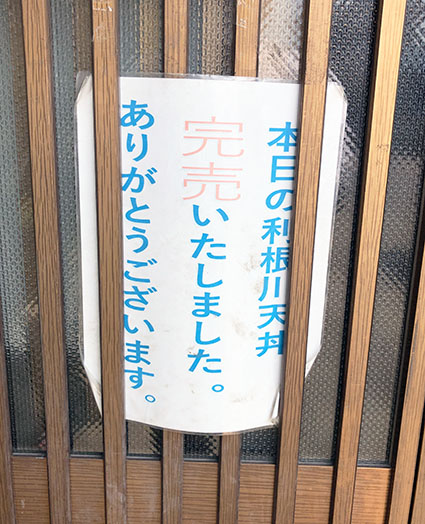 本日の利根川天丼
完売いたしました。
ありがとうございます。